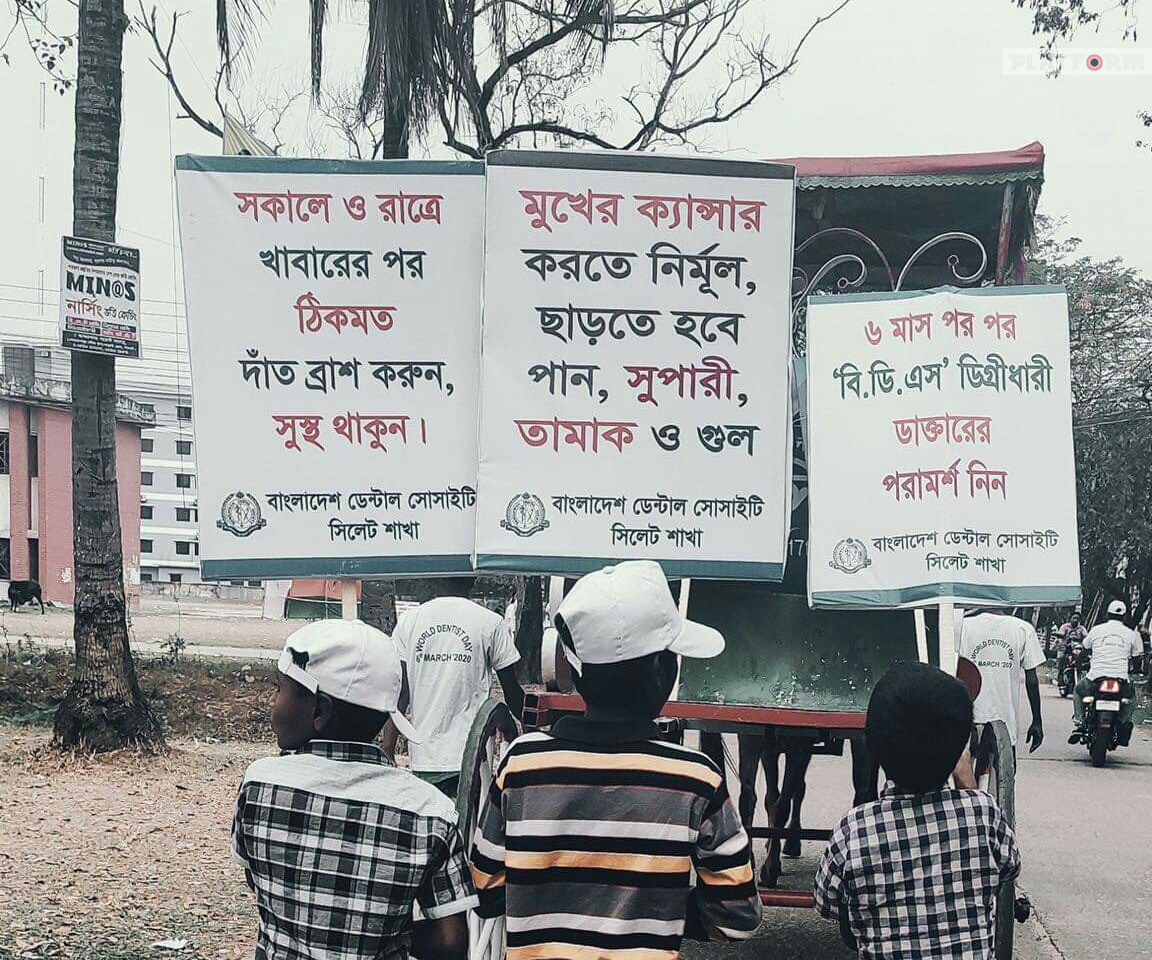 সকালে ও রাত্রে
খাবারের পর
ঠিকমত
দাঁত ব্রাশ করুন,
সুস্থ থাকুন।
বাংলাদেশ ডেন্টাল সোসাইটি
সিলেট শাখা
মুখের ক্যান্সার
করতে নির্মূল,
ছাড়তে হবে
পান, সুপারী,
তামাক ও গুল
বাংলাদেশ ডেন্টাল সোসাইটি
সিলেট শাখা
৬ মাস পর পর
‘বি.ডি.এস’ ডিগ্রীধারী
ডাক্তারের
পরামর্শ নিন
বাংলাদেশ ডেন্টাল সোসাইটি
সিলেট শাখা
PLATFORM
MIN@S
নার্সিং ভর্তি কোচিং
WORLD DENTIST DAY
MARCH'2020
WORLD DENTIST DAY
MARCH'2020